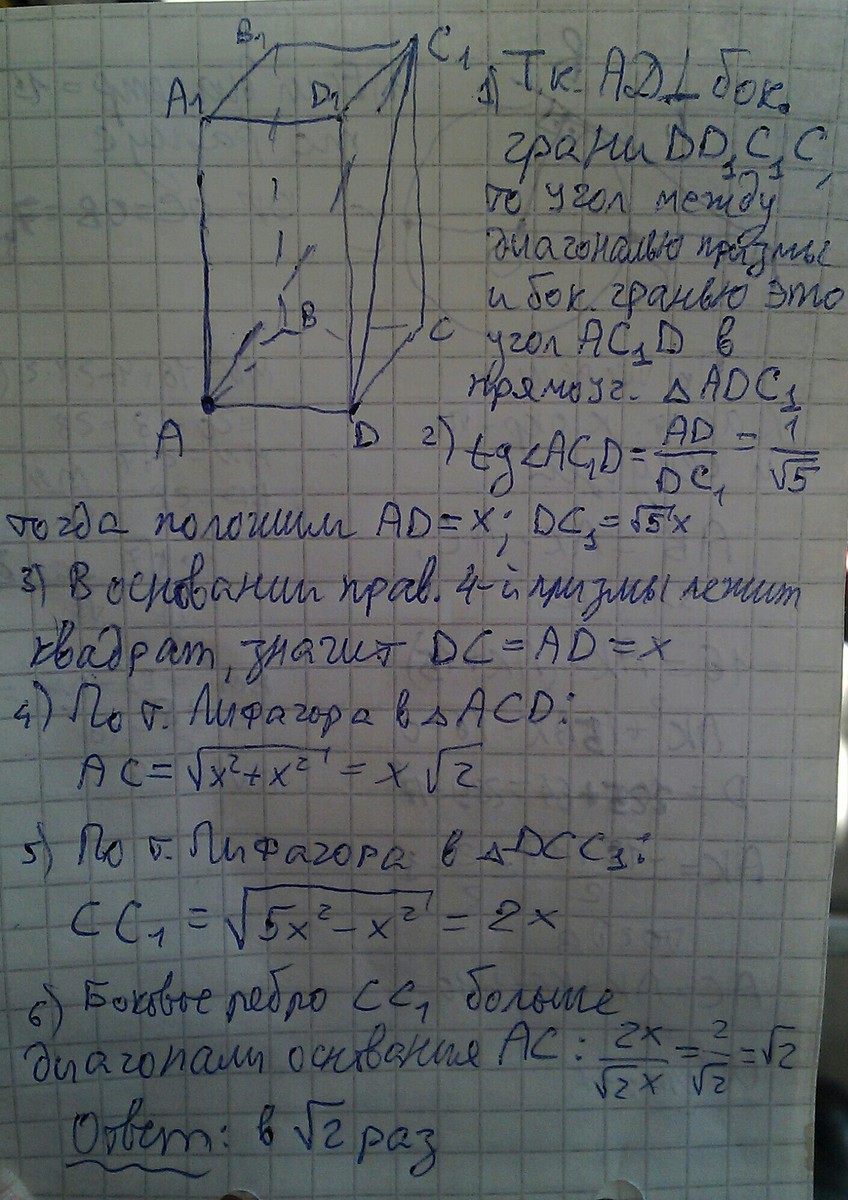 B₁
C₁
A₁
D₁
B
C
A
D
1) Т.к. AD⊥бок.
грани DD₁C₁C,
то угол между
диагональю призмы
и бок. гранью это
угол AC₁D в
прямоуг. △ADC₁
2) tg∠AC₁D = AD/DC₁ = 1/√5
тогда положим AD = x; DC₁ = √5 x
3) В основании прав. 4-й призмы лежит
квадрат, значит DC = AD = x
4) По т. Пифагора в △ACD:
AC = √(x²+x²) = x√2
5) По т. Пифагора в △DCC₁:
CC₁ = √(5x²-x²) = 2x
6) Боковое ребро CC₁ больше
диагонали основания AC: 2x/√2x = 2/√2 = √2
Ответ: в √2 раз